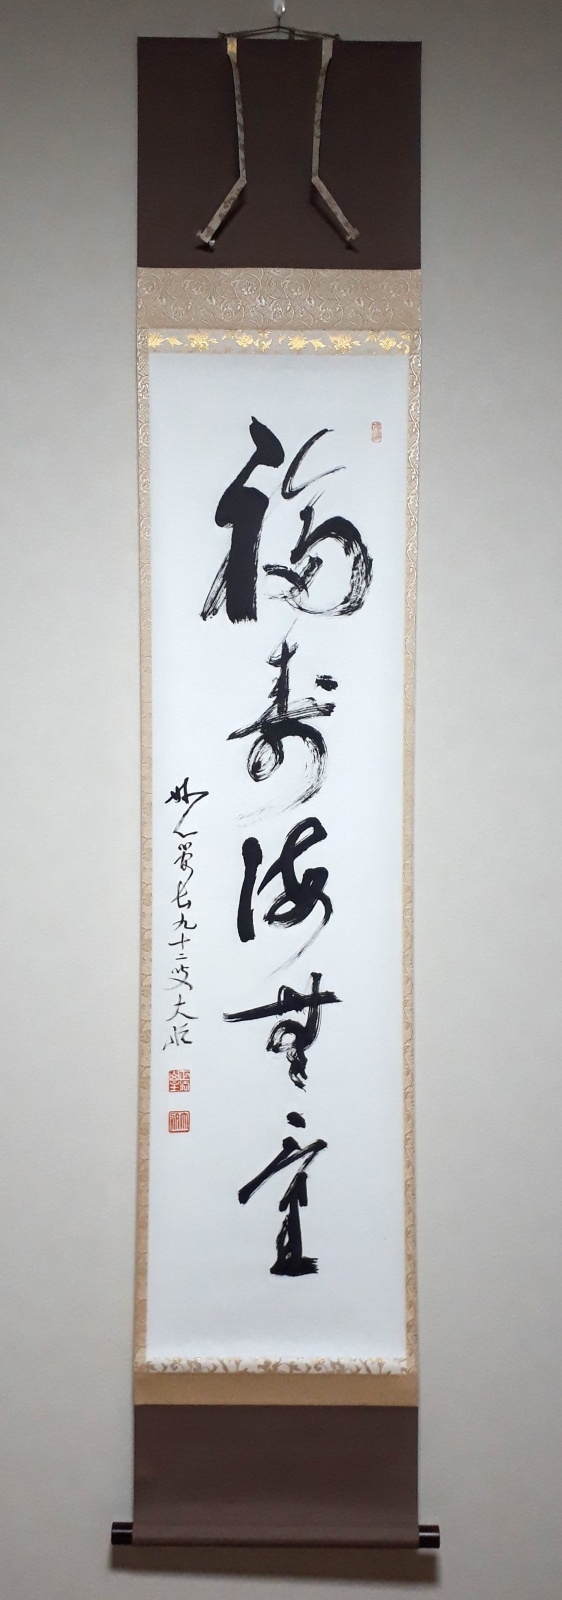 福寿海無量
妙心管長九十二叟大拙